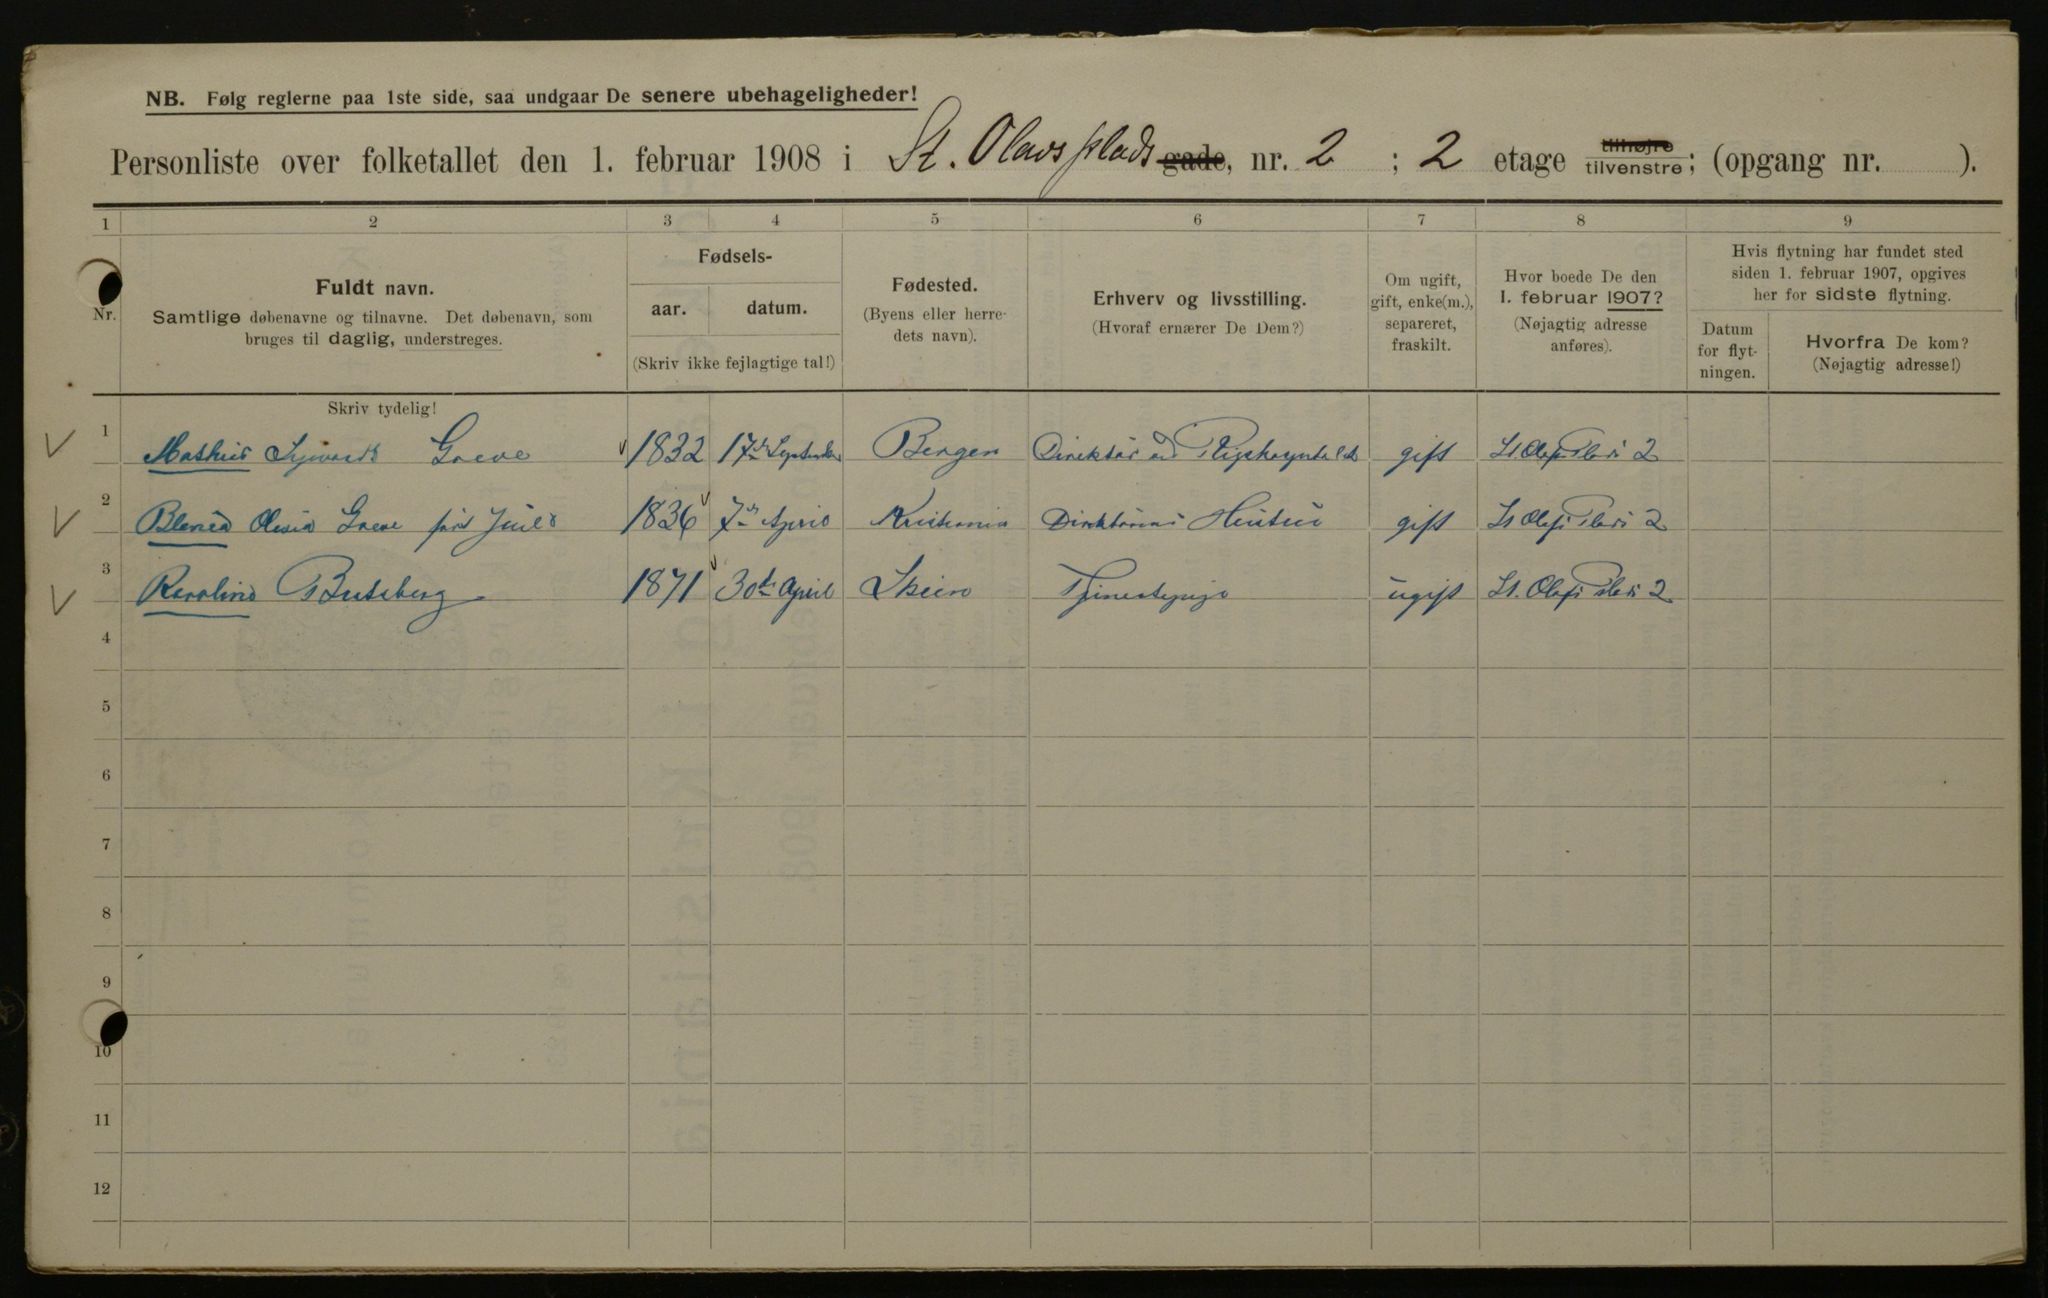 NB. Følg reglerne paa 1ste side, saa undgaar De senere ubehageligheder!
Personliste over folketallet den 1. februar 1908 i St. Olavs plads gade, nr. 2 ; 2 etage tilhøjre tilvenstre; (opgang nr. ).
1 2 3 4 5 6 7 8 9
Nr.
Fuldt navn.
Samtlige døbenavne og tilnavne. Det døbenavn, som
bruges til daglig, understreges.
Fødsels-
aar. datum.
(Skriv ikke fejlagtige tal!)
Fødested.
(Byens eller herre-
dets navn).
Erhverv og livsstilling.
(Hvoraf ernærer De Dem?)
Om ugift,
gift, enke(m.),
separeret,
fraskilt.
Hvor boede De den
1. februar 1907?
(Nøjagtig adresse
anføres).
Hvis flytning har fundet sted
siden 1. februar 1907, opgives
her for sidste flytning.
Datum
for flyt-
ningen.
Hvorfra De kom?
(Nøjagtig adresse!)
Skriv tydelig!
1 Mathias Greve 1832 17de September Bergen Direktør gift St. Olafs Plads 2
2 Greve født Juel 1836 7de April Kristiania Direktørens Hustru gift St. Olafs Plads 2
3 Karoline 1871 30de April Skien Tjenestepige ugift St. Olafs Plads 2
4
5
6
7
8
9
10
11
12